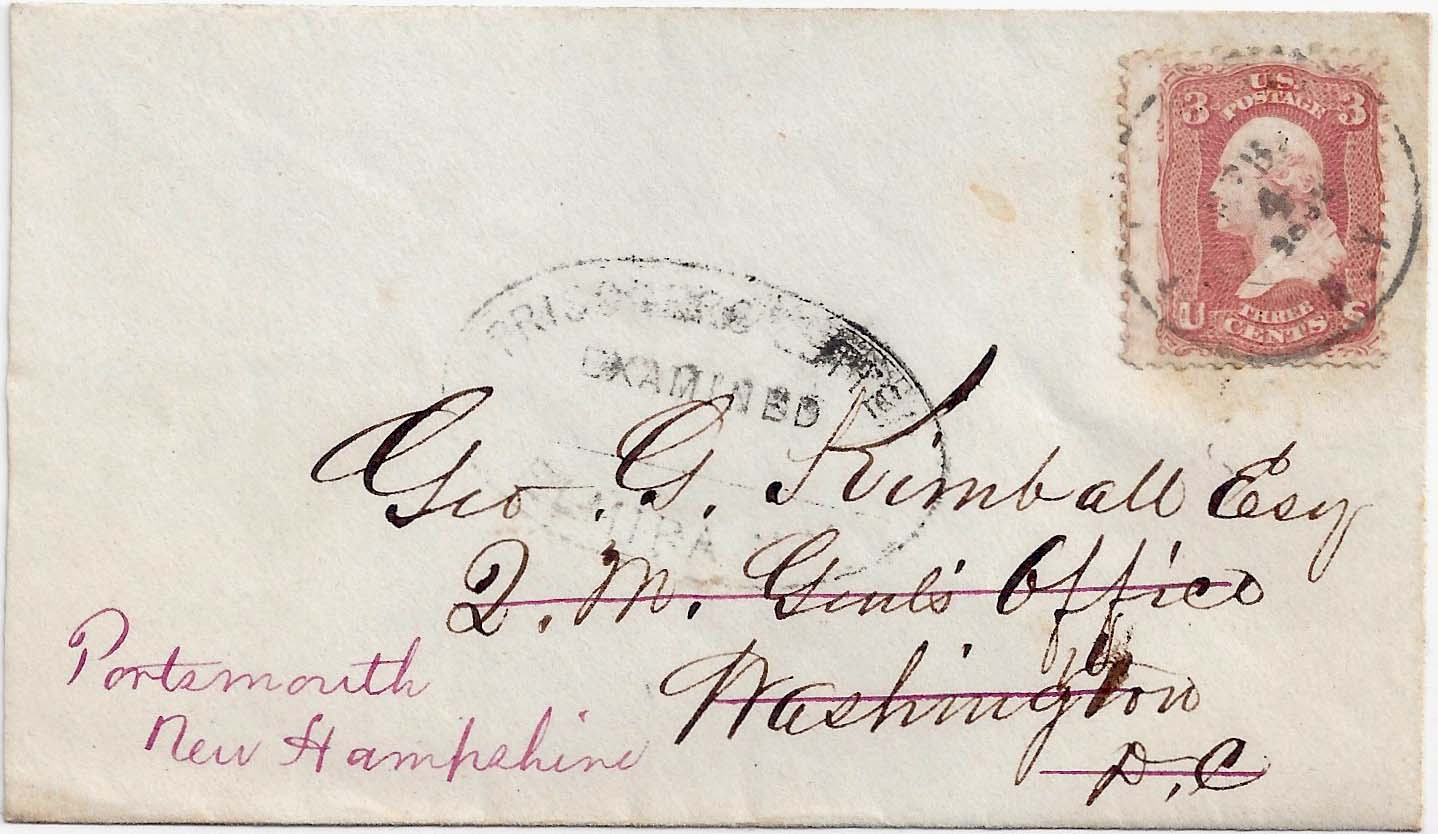 U.S.
POSTAGE
3 3
THREE
CENTS
U S
4
PRISONERS
EXAMINED
ELMIRA
Geo. G. Kimball Esq
Q. M. Genl's Office
Washington
D.C
Portsmouth
New Hampshire